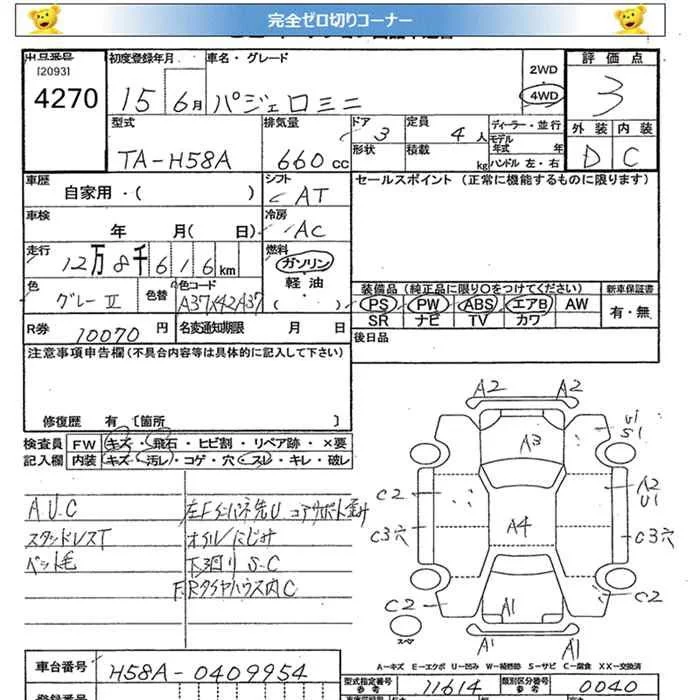 完全ゼロ切りコーナー
出品番号 初度登録年月 車名・グレード 評価点
[2093]
4270 15 6月 パジェロミニ 2WD 4WD 3
型式 排気量 ドア 3 定員 4人 ディーラー・並行 外装 内装
TA-H58A 660cc 形状 積載 kg モデル年式 年 ハンドル 左・右 D C
車歴 自家用・( ) シフト AT セールスポイント (正常に機能するものに限ります)
車検 年 月( 日) 冷房 AC
走行 12万8千616km 燃料 ガソリン 軽油
色 グレーII 色替 色コード A37X42A37
装備品 (純正品に限り○をつけてください) 新車保証書
PS PW ABS エアB AW 有・無
SR ナビ TV カワ
R券 10070円 名変通知期限 月 日 後日品
注意事項申告欄(不具合内容等は具体的に記入して下さい)
修復歴 有 〔箇所 〕
検査員 FW キズ・飛石・ヒビ割・リペア跡・×要
記入欄 内装 キズ・汚レ・コゲ・穴・スレ・キレ・破レ
AU.C
スタッドレスT
ペット毛
オイルにじみ
下回り S-C
F.Rタイヤハウス内C
A2 A2
A3
U1
S1
C2
A2
U1
C3穴
A4
C3穴
C2
A1
C2
スペア
A1 A1
A-キズ E-エクボ U-凹み W-補修跡 S-サビ C-腐食 XX-交換済
車台番号 H58A-0409954
型式指定番号 参考 11614 類別区分番号 参考 0040
登録番号